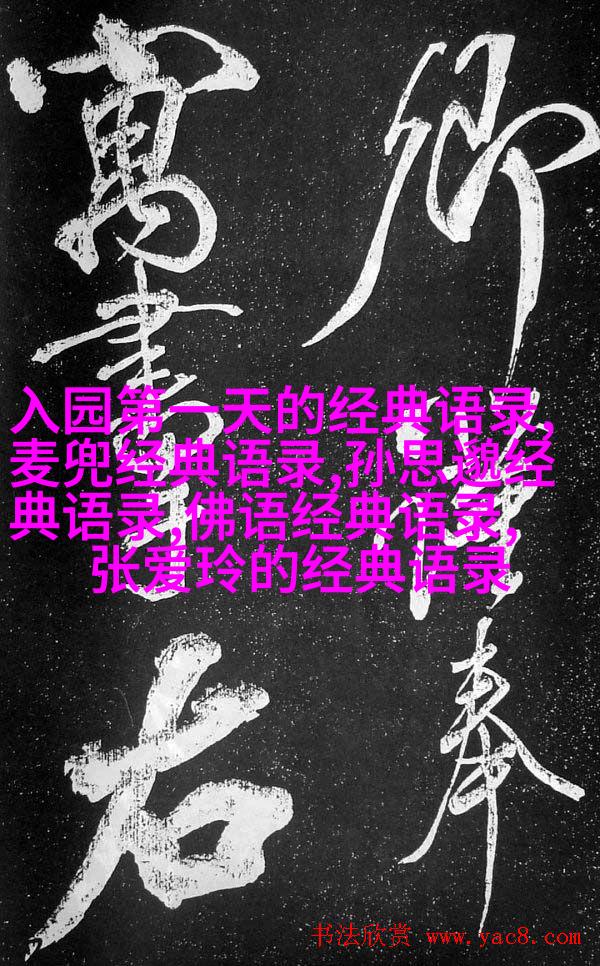 卿奉
寓書右
入园第一天的经典语录,
麦兜经典语录,孙思邈经
典语录,佛语经典语录,
张爱玲的经典语录
书法欣赏 www.yac8.com